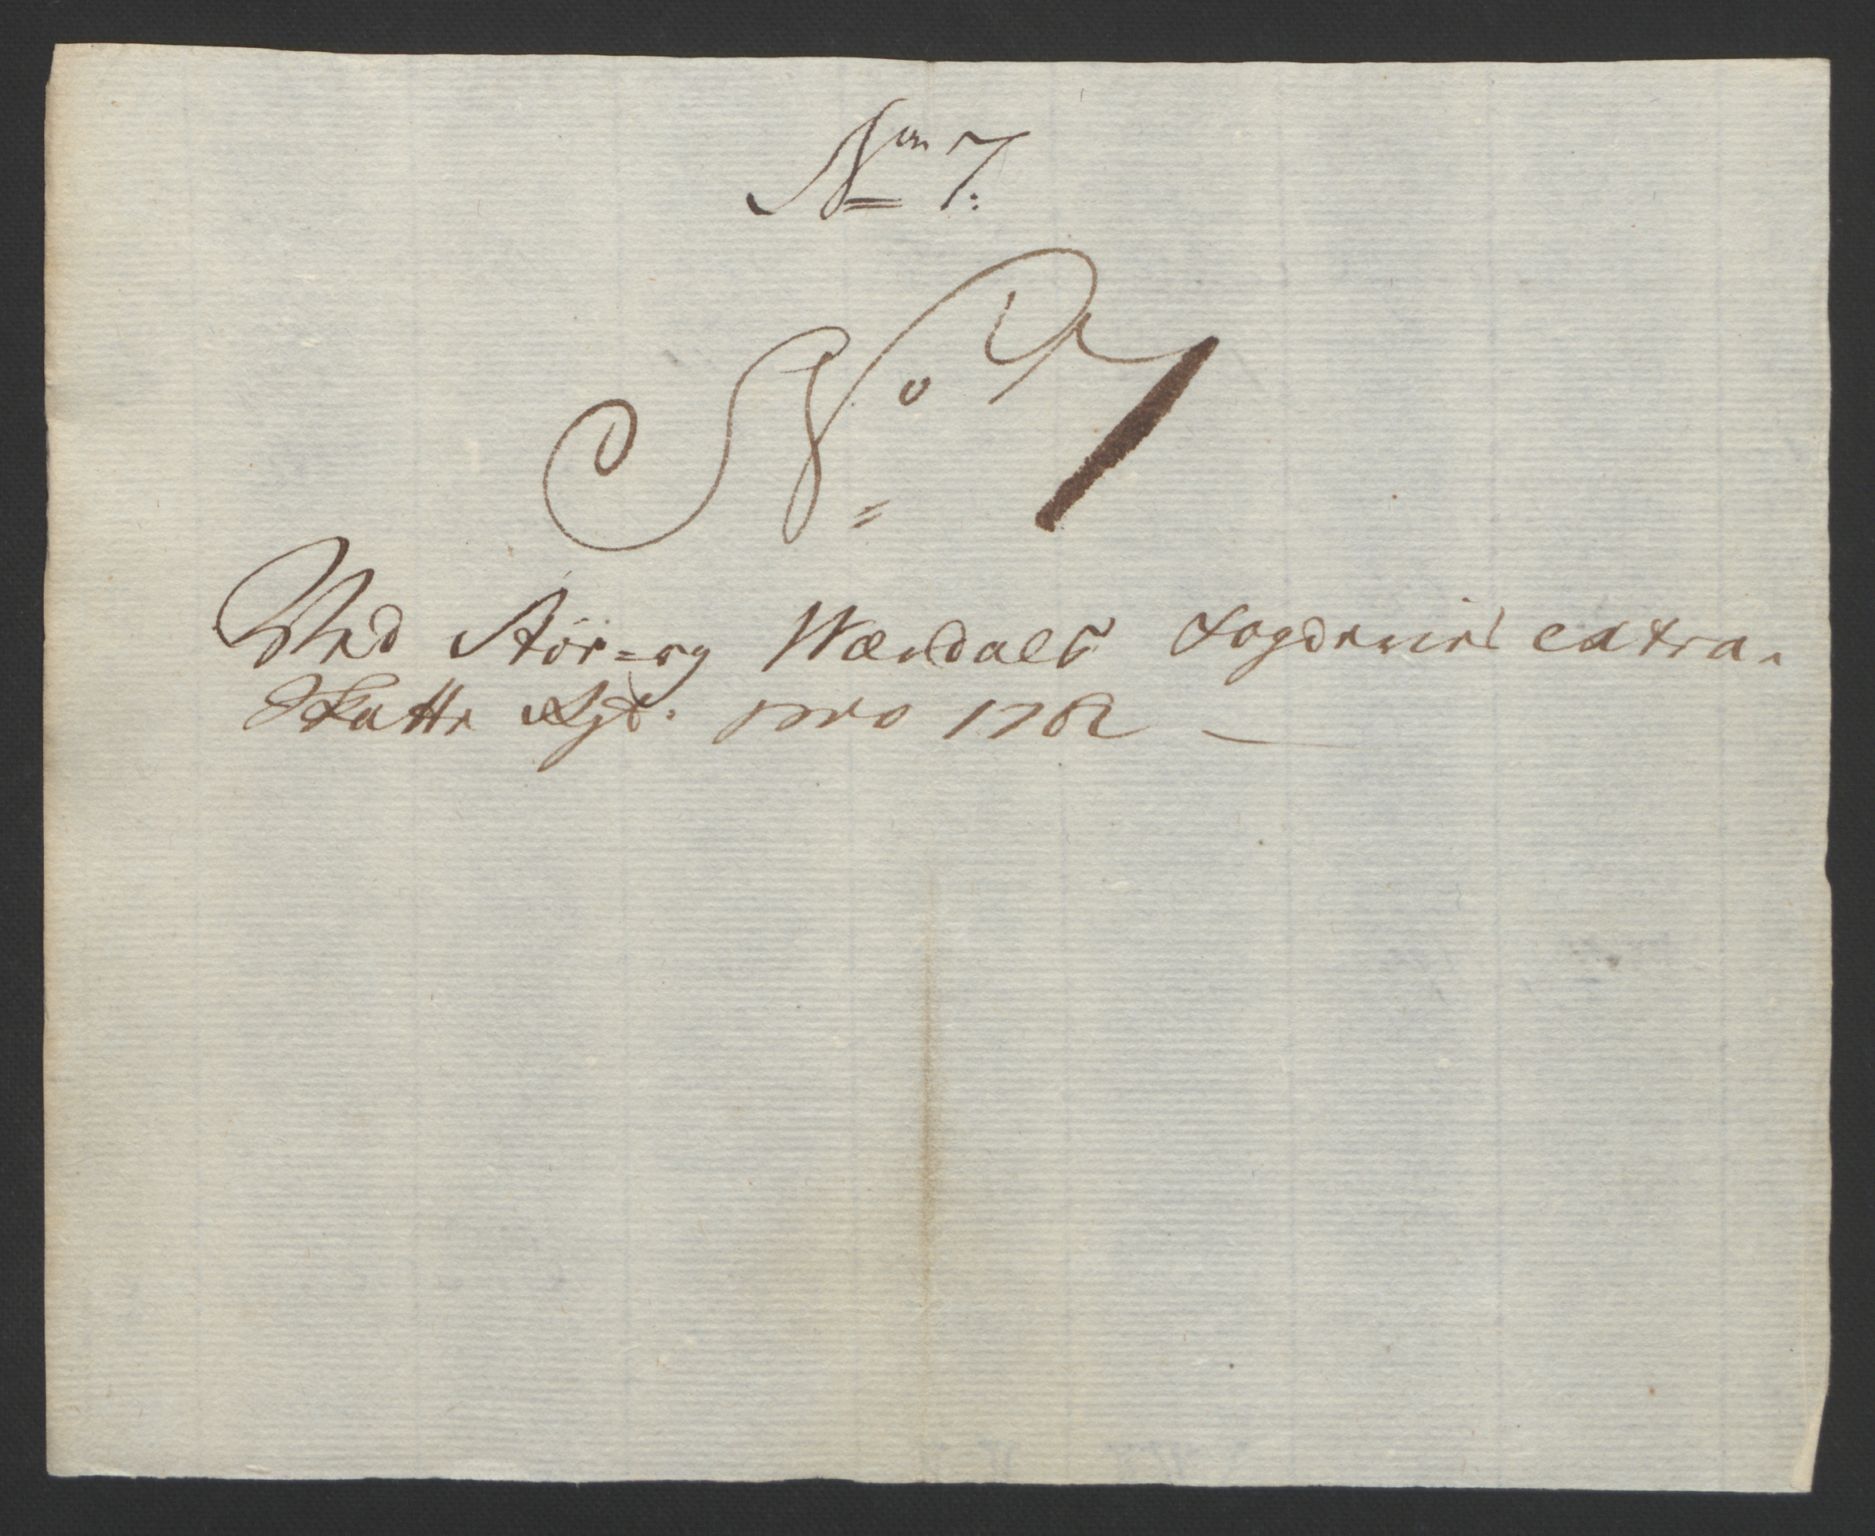 No 7:
No 7
Ved Stör- og Værdals Fogderies extra-
Skatte Rgs. pro 1762